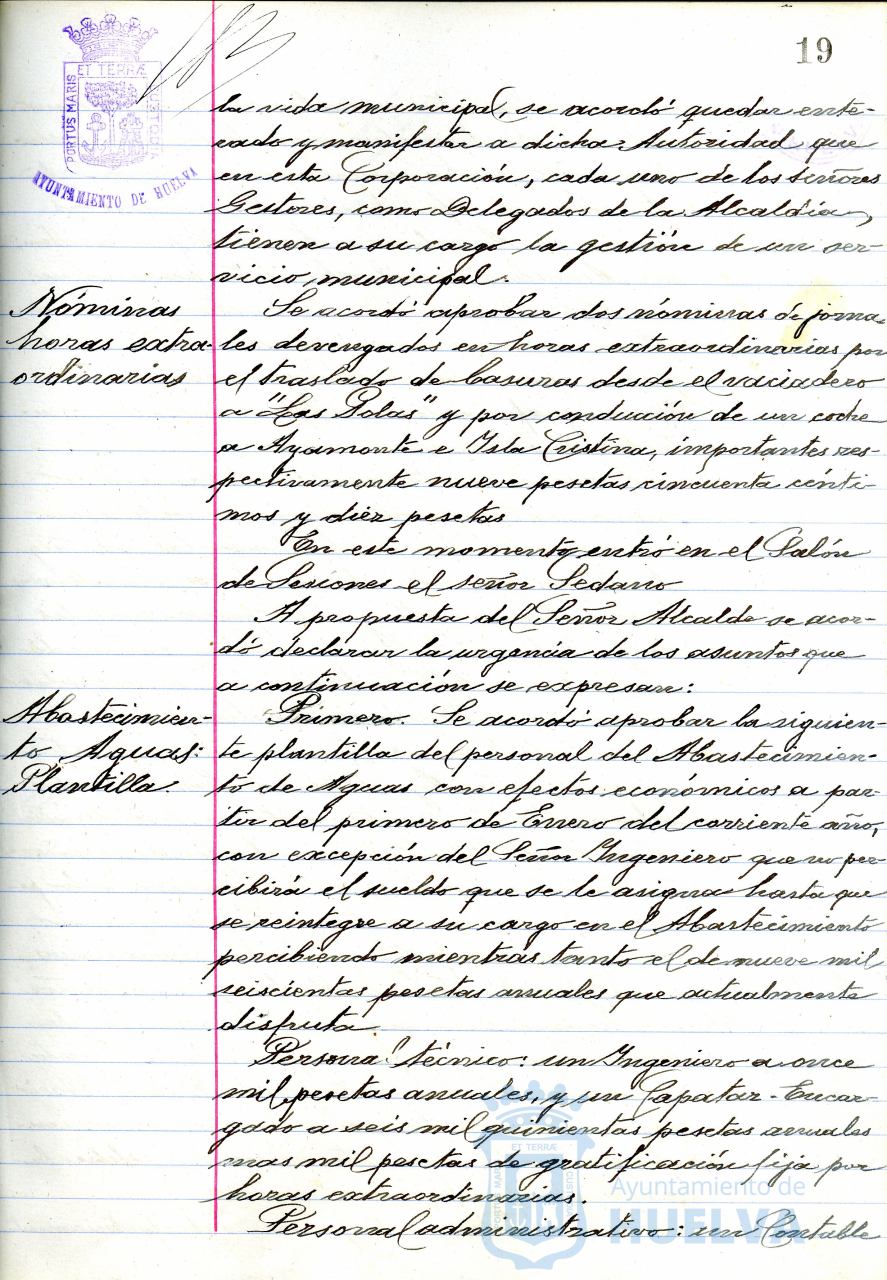 19
PORTUS MARIS
ET TERRÆ
CUSTODIA
AYUNTAMIENTO DE HUELVA
la vida municipal, se acordó quedar ente-
rado y manifestar a dicha Autoridad que
en esta Corporación, cada uno de los señores
Gestores, como Delegados de la Alcaldía,
tienen a su cargo la gestión de un ser-
vicio municipal.
Nóminas
horas extra-
ordinarias
Se acordó aprobar dos nóminas de jorna-
les devengados en horas extraordinarias por
el traslado de basuras desde el vaciadero
a "Las Polas" y por conducción de un coche
a Ayamonte e Isla Cristina, importantes res-
pectivamente nueve pesetas cincuenta cénti-
mos y diez pesetas
En este momento entró en el Salón
de Sesiones el señor Sedano
A propuesta del Señor Alcalde se acor-
dó declarar la urgencia de los asuntos que
a continuación se expresan:
Abastecimien-
to Aguas:
Plantilla.
Primero. Se acordó aprobar la siguien-
te plantilla del personal del Abastecimien-
to de Aguas con efectos económicos a par-
tir del primero de Enero del corriente año,
con excepción del Señor Ingeniero que no per-
cibirá el sueldo que se le asigna hasta que
se reintegre a su cargo en el Abastecimiento
percibiendo mientras tanto el de nueve mil
seiscientas pesetas anuales que actualmente
disfruta.
Personal técnico: un Ingeniero a once
mil pesetas anuales, y un Capataz-Encar-
gado a seis mil quinientas pesetas anuales
mas mil pesetas de gratificación fija por
horas extraordinarias.
Personal administrativo: un Contable
Ayuntamiento de
HUELVA